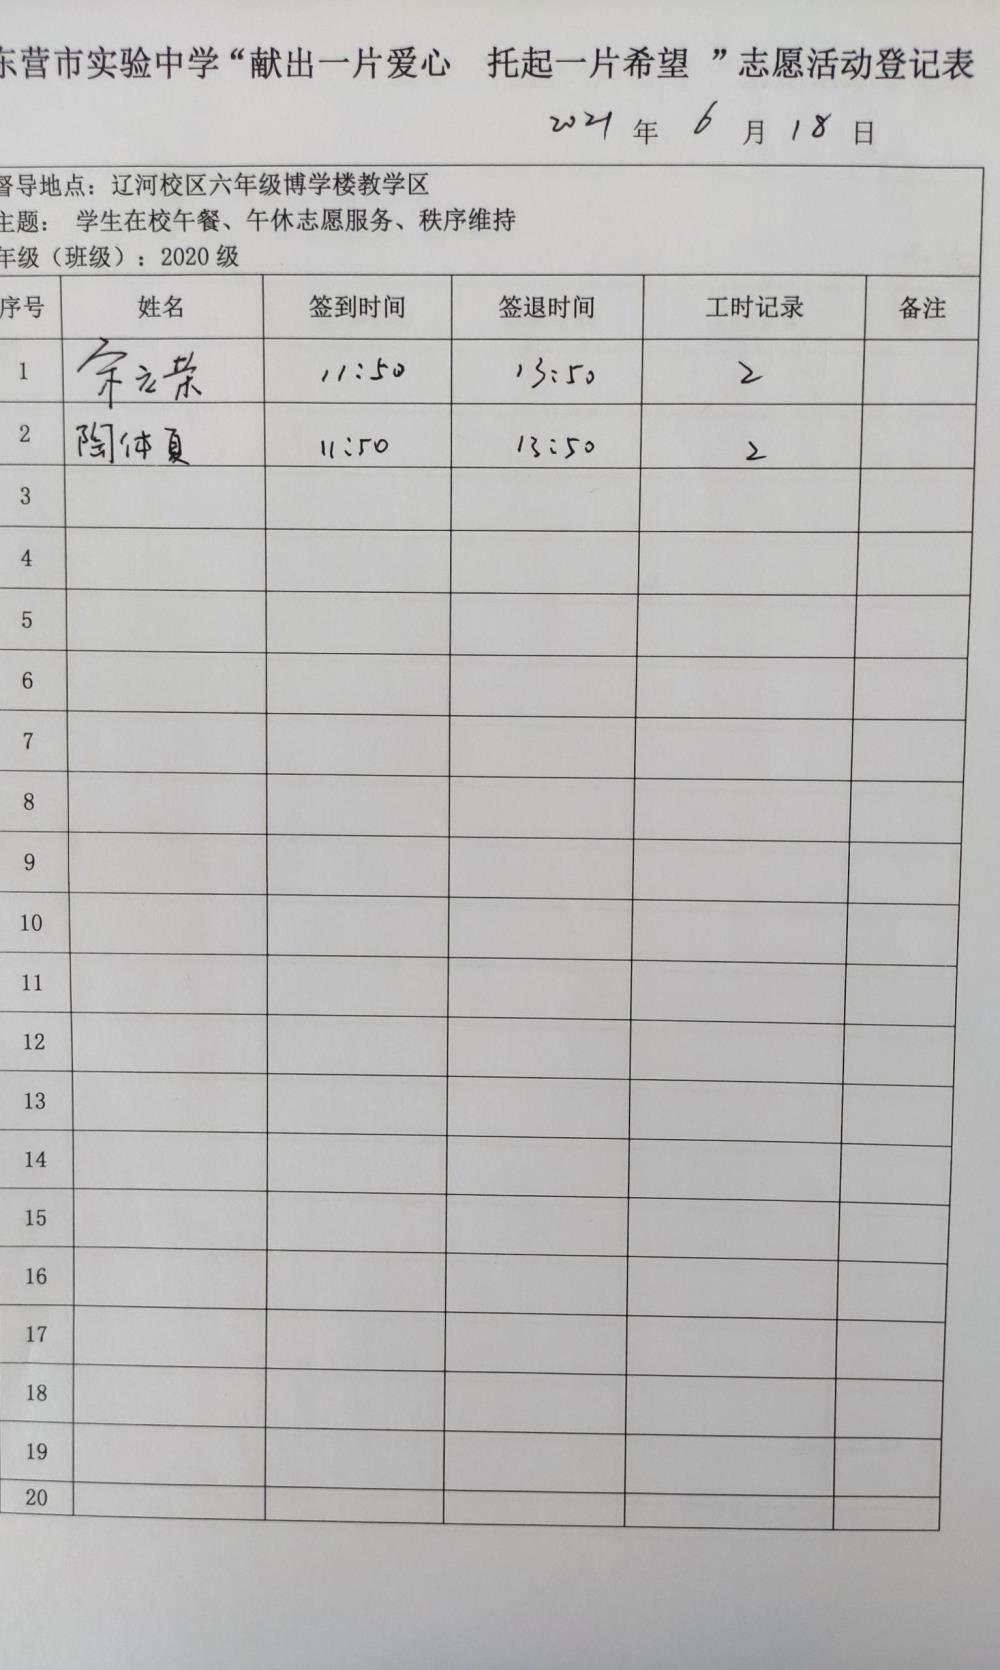 东营市实验中学“献出一片爱心 托起一片希望 ”志愿活动登记表
2021 年 6 月 18 日
督导地点：辽河校区六年级博学楼教学区
主题： 学生在校午餐、午休志愿服务、秩序维持
年级（班级）：2020 级
序号 姓名 签到时间 签退时间 工时记录 备注
1 11:50 13:50 2
2 陶体夏 11:50 13:50 2
3
4
5
6
7
8
9
10
11
12
13
14
15
16
17
18
19
20